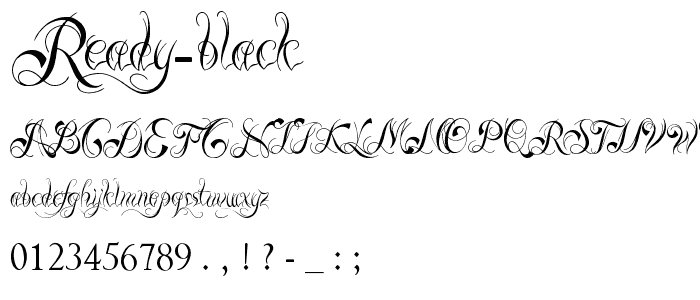 Ready-black
ABCDEFGHIJKLMNOPQRSTUVW
abcdefghijklmnopqrstuvwxyz
0123456789 . , ! ? - _ : ;